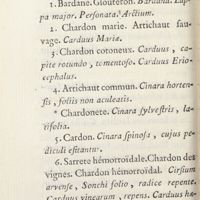 1. Bardane. Glouteron. Bardana. Lap-
pa major. Personata. Arctium.
2. Chardon marie. Artichaut sau-
vage. Carduus Mariæ.
3. Chardon cotoneux. Carduus, ca-
pite rotundo, tomentoso. Carduus Erio-
cephalus.
4. Artichaut commun. Cinara horten-
sis, foliis non aculeatis.
* Chardonete. Cinara sylvestris, la-
tifolia.
5. Cardon. Cinara spinosa, cujus pe-
diculi esitantur.
6. Sarrete hémorroïdale. Chardon des
vignes. Chardon hémorroïdal. Cirsium
arvense, Sonchi folio, radice repente.
Carduus vinearum, repens. Carduus ha-